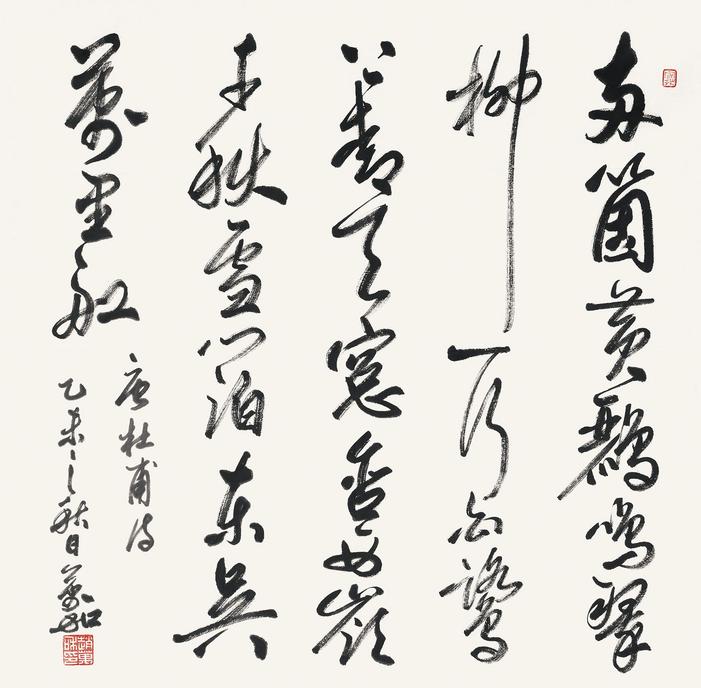 两箇黄鸝鳴翠
柳一行白鷺
上青天窓含西嶺
千秋雪门泊东吴
萬里船
唐杜甫诗
乙未之秋日